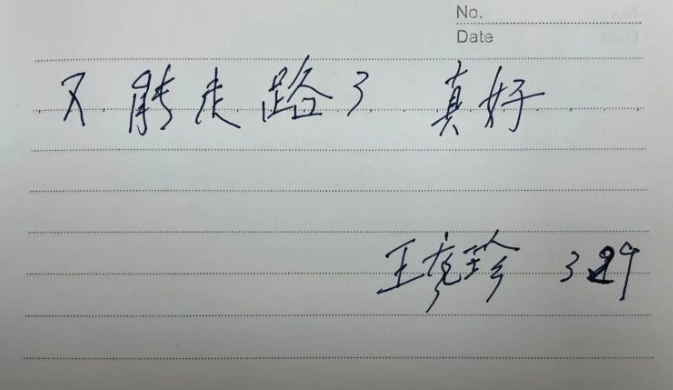 No.
Date
又能走路了 真好
王亮珍 3 29